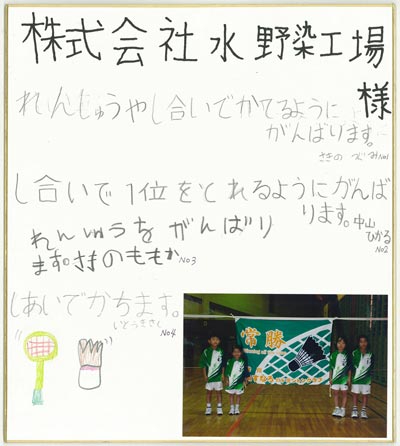 株式会社水野染工場
様
れんじゅうやし合いでかてるように
がんばります。
さきの つぐみNo1
し合いで1位をとれるようにがんば
ります。中山
ひかる
No2
れんしゅうをがんばり
ます。さきのももか No3
しあいでかちます。
いとうきさく No4
常勝